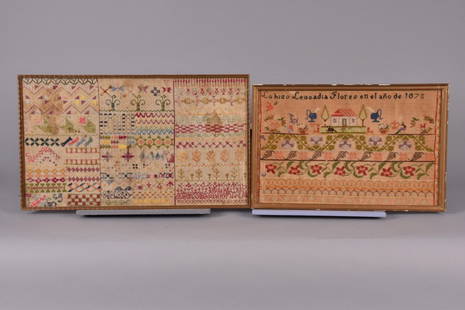 La hizo Leocadia Flores en el año de 1878